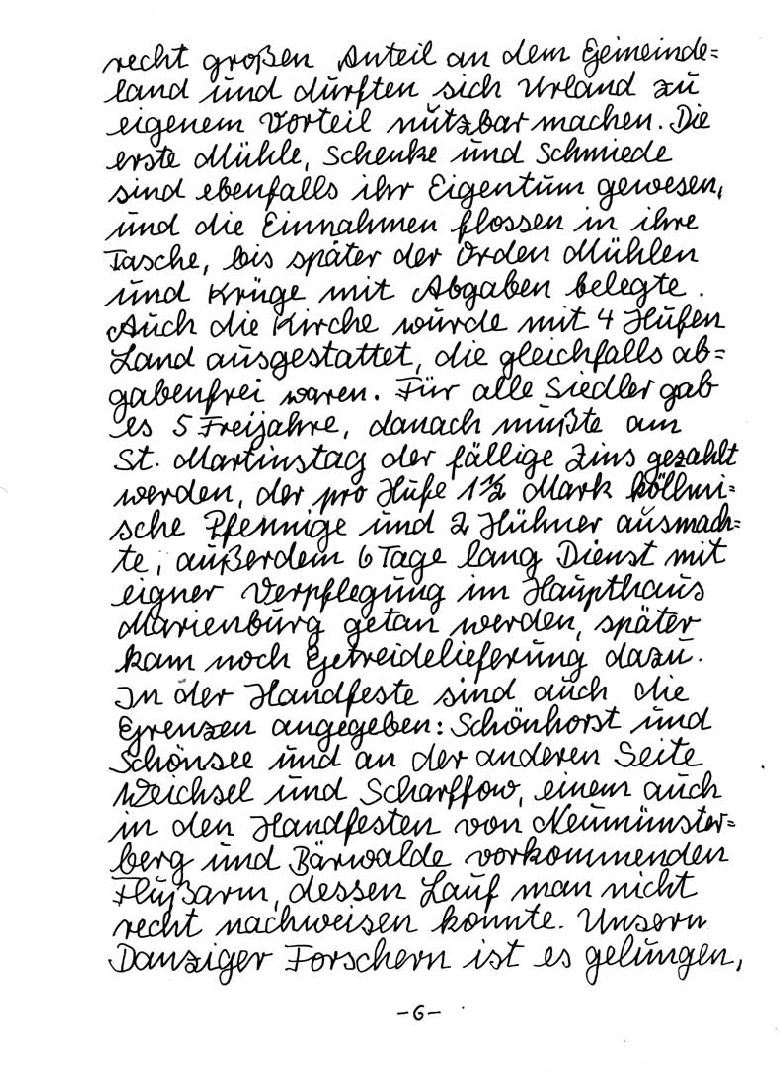 recht großen Anteil an dem Gemeinde=
land und durften sich Urland zu
eigenem Vorteil nutzbar machen. Die
erste Mühle, Schenke und Schmiede
sind ebenfalls ihr Eigentum gewesen,
und die Einnahmen flossen in ihre
Tasche, bis später der Orden Mühlen
und Krüge mit Abgaben belegte.
Auch die Kirche wurde mit 4 Hufen
Land ausgestattet, die gleichfalls ab=
gabenfrei waren. Für alle Siedler gab
es 5 Freijahre, danach mußte am
St. Martinstag der fällige Zins gezahlt
werden, der pro Hufe 1½ Mark köllmi=
sche Pfennige und 2 Hühner ausmach=
te, außerdem 6 Tage lang Dienst mit
eigner Verpflegung im Haupthaus
Marienburg getan werden, später
kam noch Getreidelieferung dazu.
In der Handfeste sind auch die
Grenzen angegeben: Schönhorst und
Schönsee und an der anderen Seite
Weichsel und Scharffow, einem auch
in den Handfesten von Neumünster=
berg und Bärwalde vorkommenden
Flußarm, dessen Lauf man nicht
recht nachweisen konnte. Unsern
Danziger Forschern ist es gelungen,
-6-